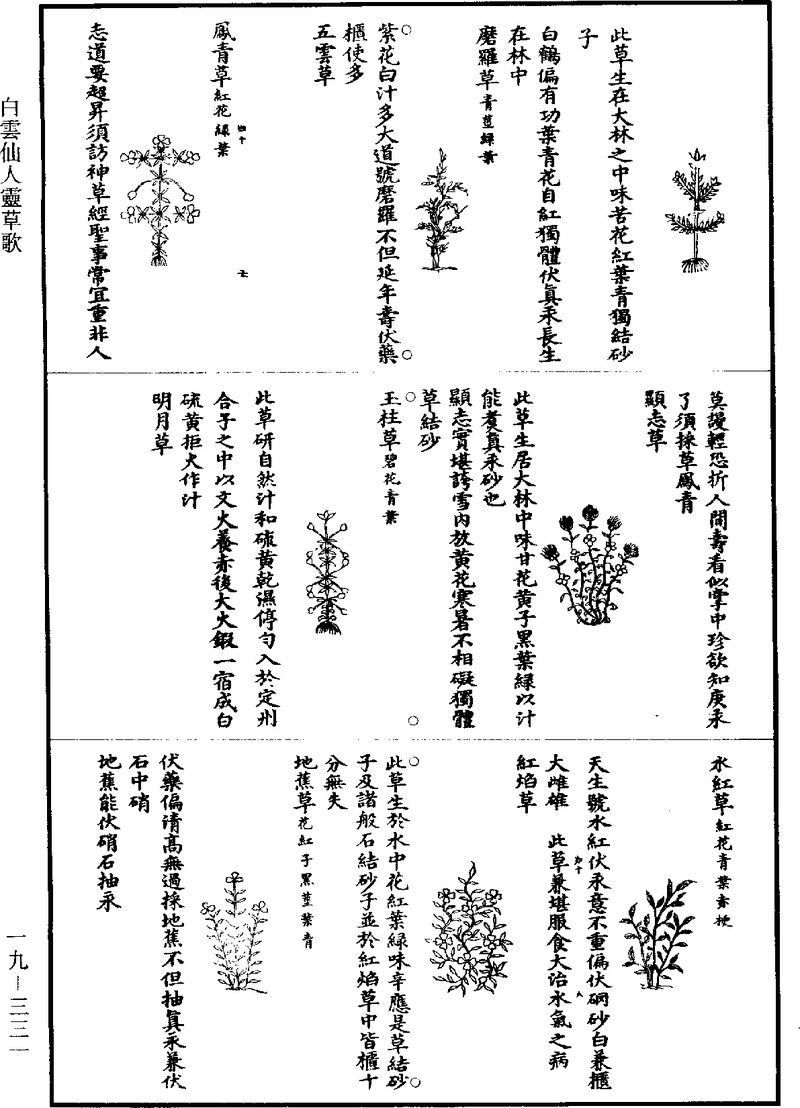 此草生在大林之中味苦花紅葉青獨結砂
子
白鶴偏有功葉青花自紅獨體伏真汞長生
在林中
磨羅草青莖綠葉
紫花白汁多大道號磨羅不但延年壽伏藥
櫃使多
五雲草
鳳青草紅花綠葉
四十
七
志道要超昇須訪神草經聖事常宜重非人
莫謾輕恐折人間壽看似掌中珍欲知庚汞
了須採草鳳青
顯志草
此草生居大林中味甘花黄子黑葉綠以汁
能煮真汞砂也
顯志實堪誇雪內放黄花寒暑不相礙獨體
草結砂
玉柱草碧花青葉
此草研自然汁和硫黄乾濕停勻入於定州
合子之中以文火養赤後大火鍜一宿成白
硫黄拒火作汁
明月草
水紅草紅花青葉赤梗
天生號水紅伏汞意不重偏伏硇砂白兼櫃
大雌雄 此草兼堪服食大治水氣之病
紅焰草
此草生於水中花紅葉綠味辛應是草結砂
子及諸般石結砂子並於紅焰草中皆櫃十
分無失
地蕉草花紅子黑莖葉青
伏藥偏清高無過採地蕉不但抽真汞兼伏
石中硝
地蕉能伏硝石抽汞
白雲仙人靈草歌
一九－三三一